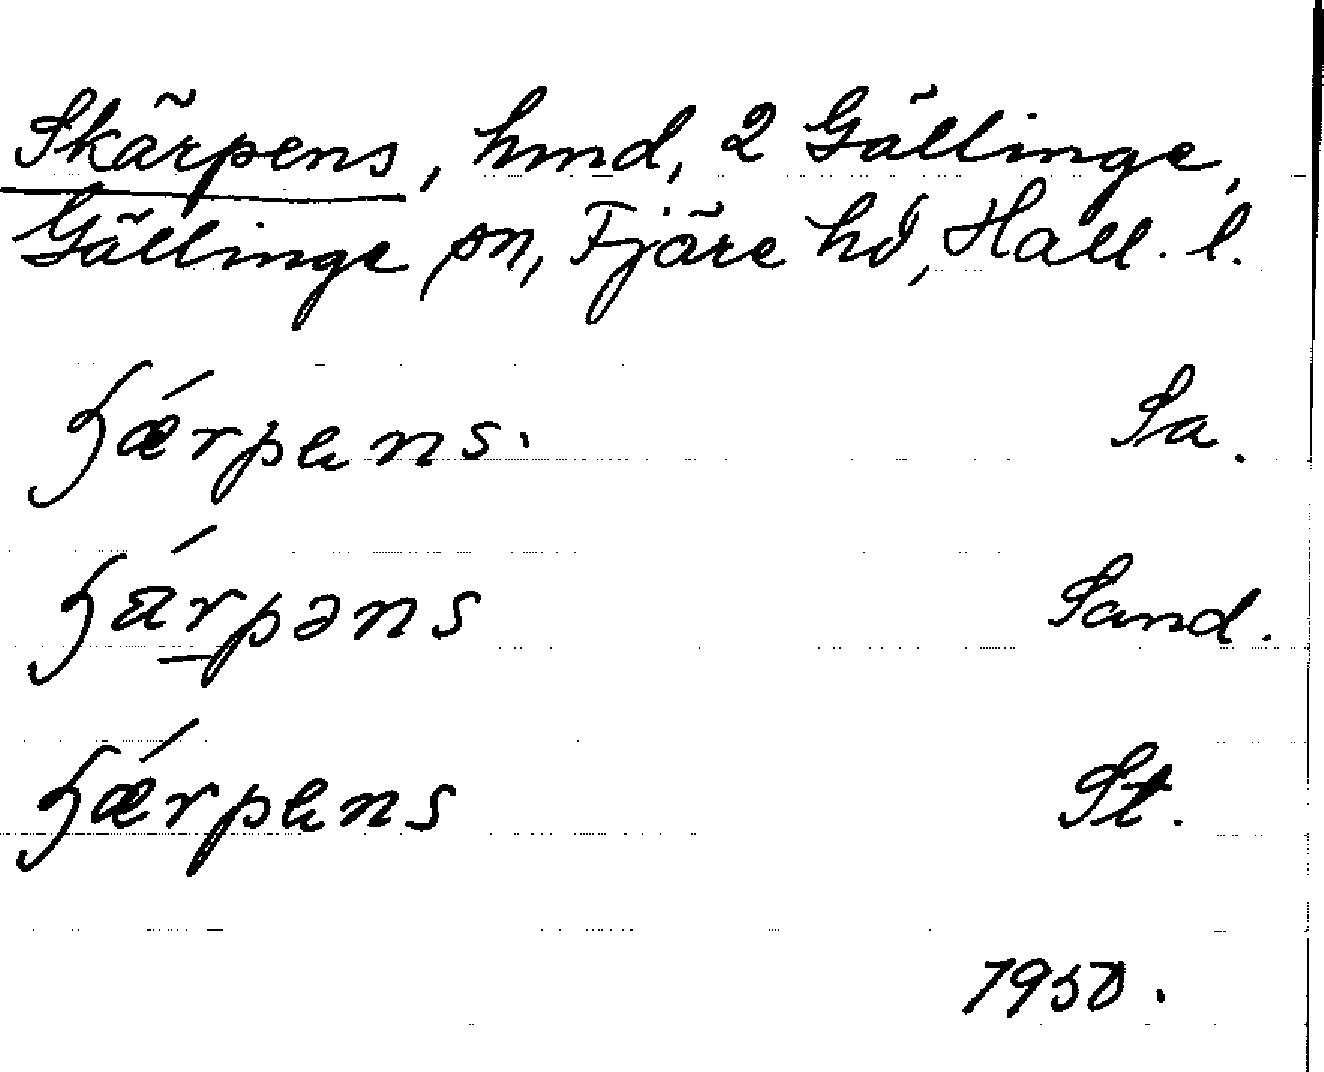 Skärpens, hmd, 2 Gällinge,
Gällinge sn, Fjäre hd, Hall. l.
ʃǽrpens. Sa.
ʃárpəns Sand.
ʃǽrpens St.
1950.